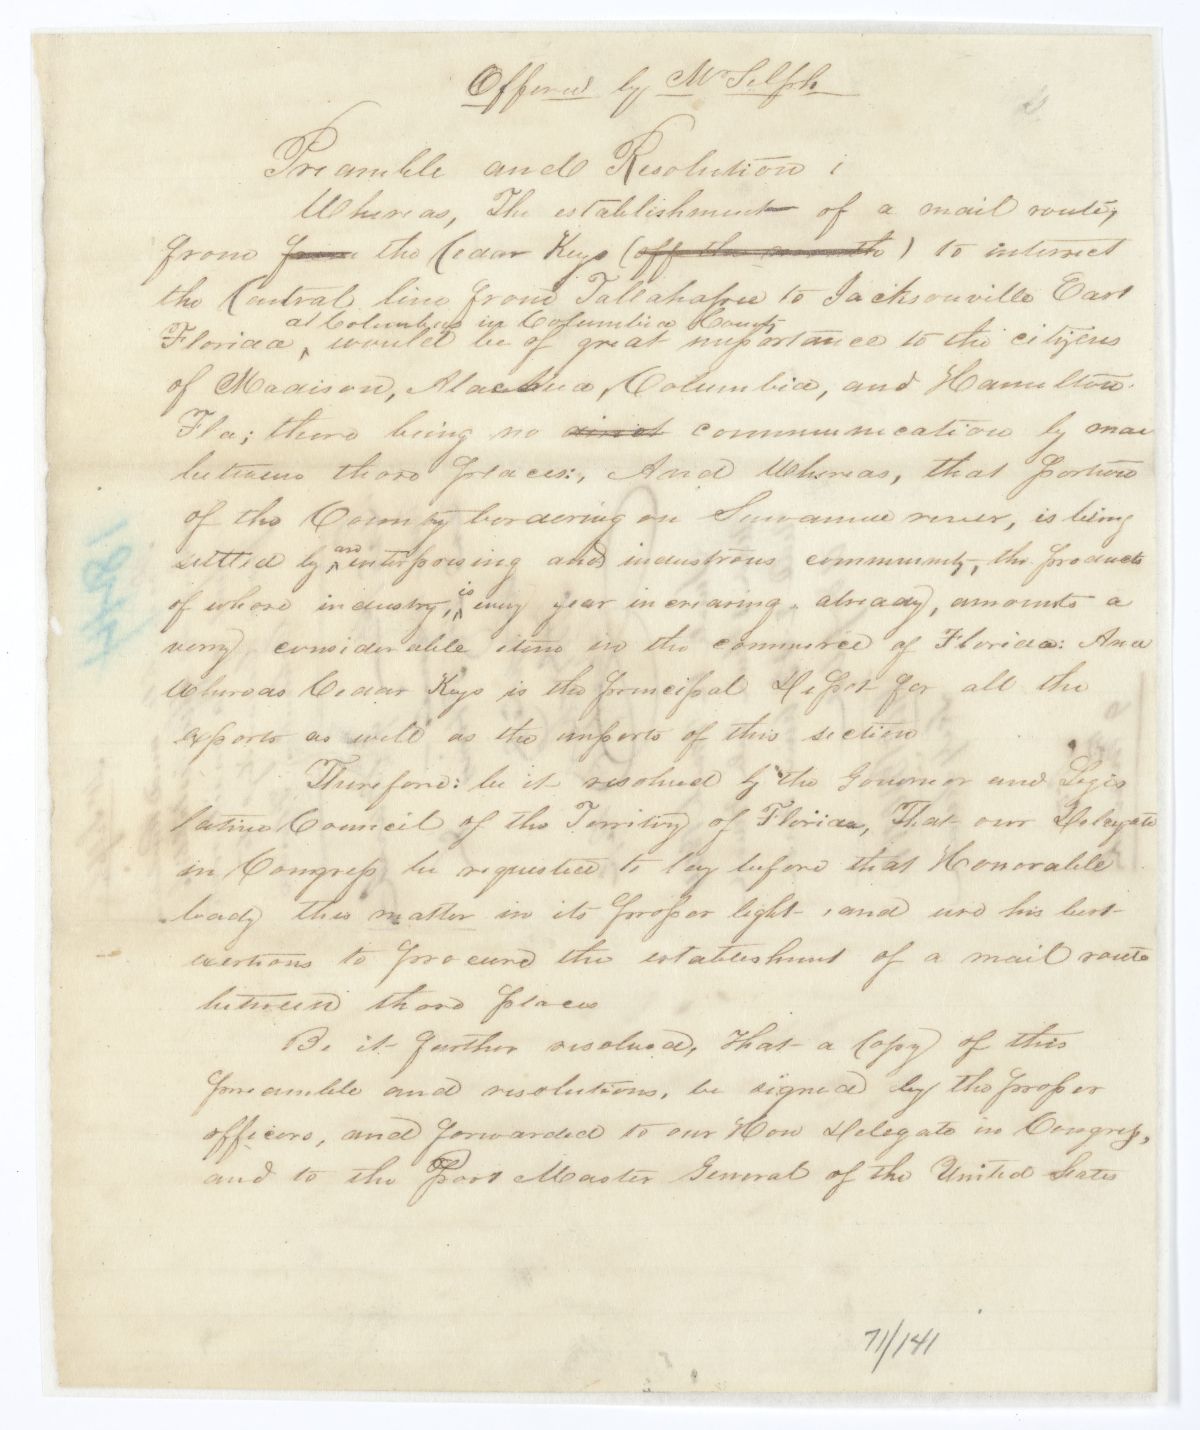 Offered by Mr Selph
Preamble and Resolution :
Whereas, The establishment of a mail route,
from from the Cedar Keys (off the mouth) to intersect
the Central line from Tallahassee to Jacksonville East
at Columbus in Columbia County
Florida, ^ would be of great importance to the citizens
of Madison, Alachua, Columbia, and Hamilton.
Fla; there being no direct communication by mai
between those places:, And Whereas, that portion
of the County bordering on Suwannee river, is being
settled by ^ an interprising and industrous community, the products
of whose industry, ^ is every year increasing. already, amounts a
very considerable item in the commerce of Florida: And
Whereas Cedar Keys is the principal Depot for all the
exports as well as the imports of this section
Therefore: be it resolved by the Governor and Legis
lative Council of the Territory of Florida, That our Delegate
in Congress be requested to lay before that Honorable
body this matter in its proper light, and use his best
exertions to procure the establishment of a mail route
between those places
Be it further resolved, that a Copy of this
preamble and resolutions, be signed by the proper
officers, and forwarded to our Hon Delegate in Congress,
and to the Post Master General of the United States
1844
71/141